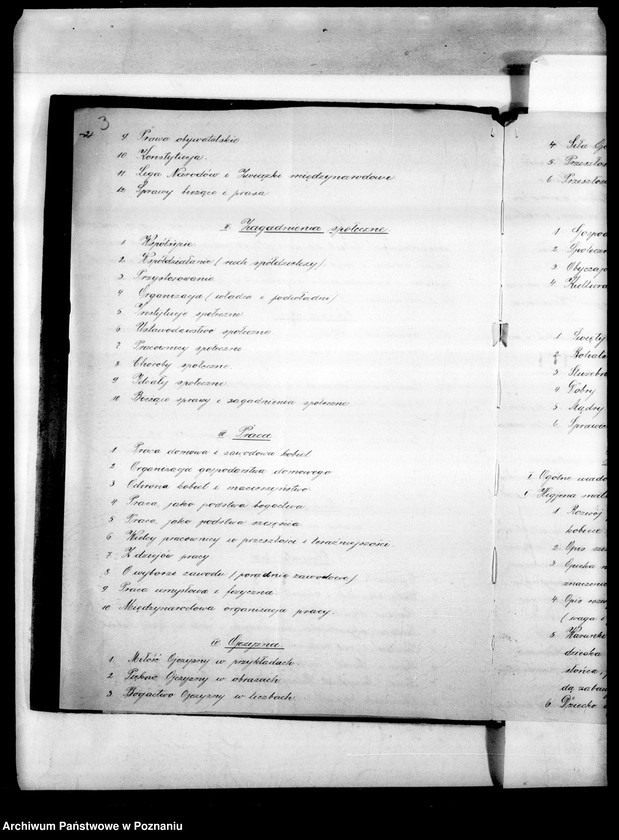 3
9 Prawa obywatelskie
10 Konstytucja.
11 Liga Narodów i Związki międzynarodowe
12 Sprawy bieżące i prasa
II Zagadnienia społeczne
1 Współżycie
2 Współdziałanie (ruch spółdzielczy)
3 Przystosowanie
4 Organizacja (władza i podwładni)
5 Instytucje społeczne
6 Ustawodawstwo społeczne
7 Pracownicy społeczni
8 Choroby społeczne.
9 Ideały społeczne.
10 Bieżące sprawy i zagadnienia społeczne
III Praca
1 Praca domowa i zawodowa kobiet
2 Organizacja gospodarstwa domowego
3 Ochrona kobiet i macierzyństwa
4 Praca, jako podstwa bogactwa
5 Praca, jako podstwa szczęścia
6 Wielcy pracownicy w przeszłości i teraźniejszości.
7 Z dziejów pracy
8 O wyborze zawodu (poradnie zawodowe)
9 Praca umysłowa i fizyczna
10 Międzynarodowa organizacja pracy.
IV Ojczyzna
1. Miłość Ojczyzny w przykładach.
2 Piękno Ojczyzny w obrazach
3 Bogactwo Ojczyzny w liczbach.
4. Siła
5.
6
1
2
3
4 Kultura
1
2
3
4 Dobry
5 Mądry
6
I Ogólne
1 Higjena
1 Rozwój
kobiece
2. Opis
3. Opieka
4. Opis
(waga
5. Warunki
dziecka
słońca,
6 Dziecko
Archiwum Państwowe w Poznaniu